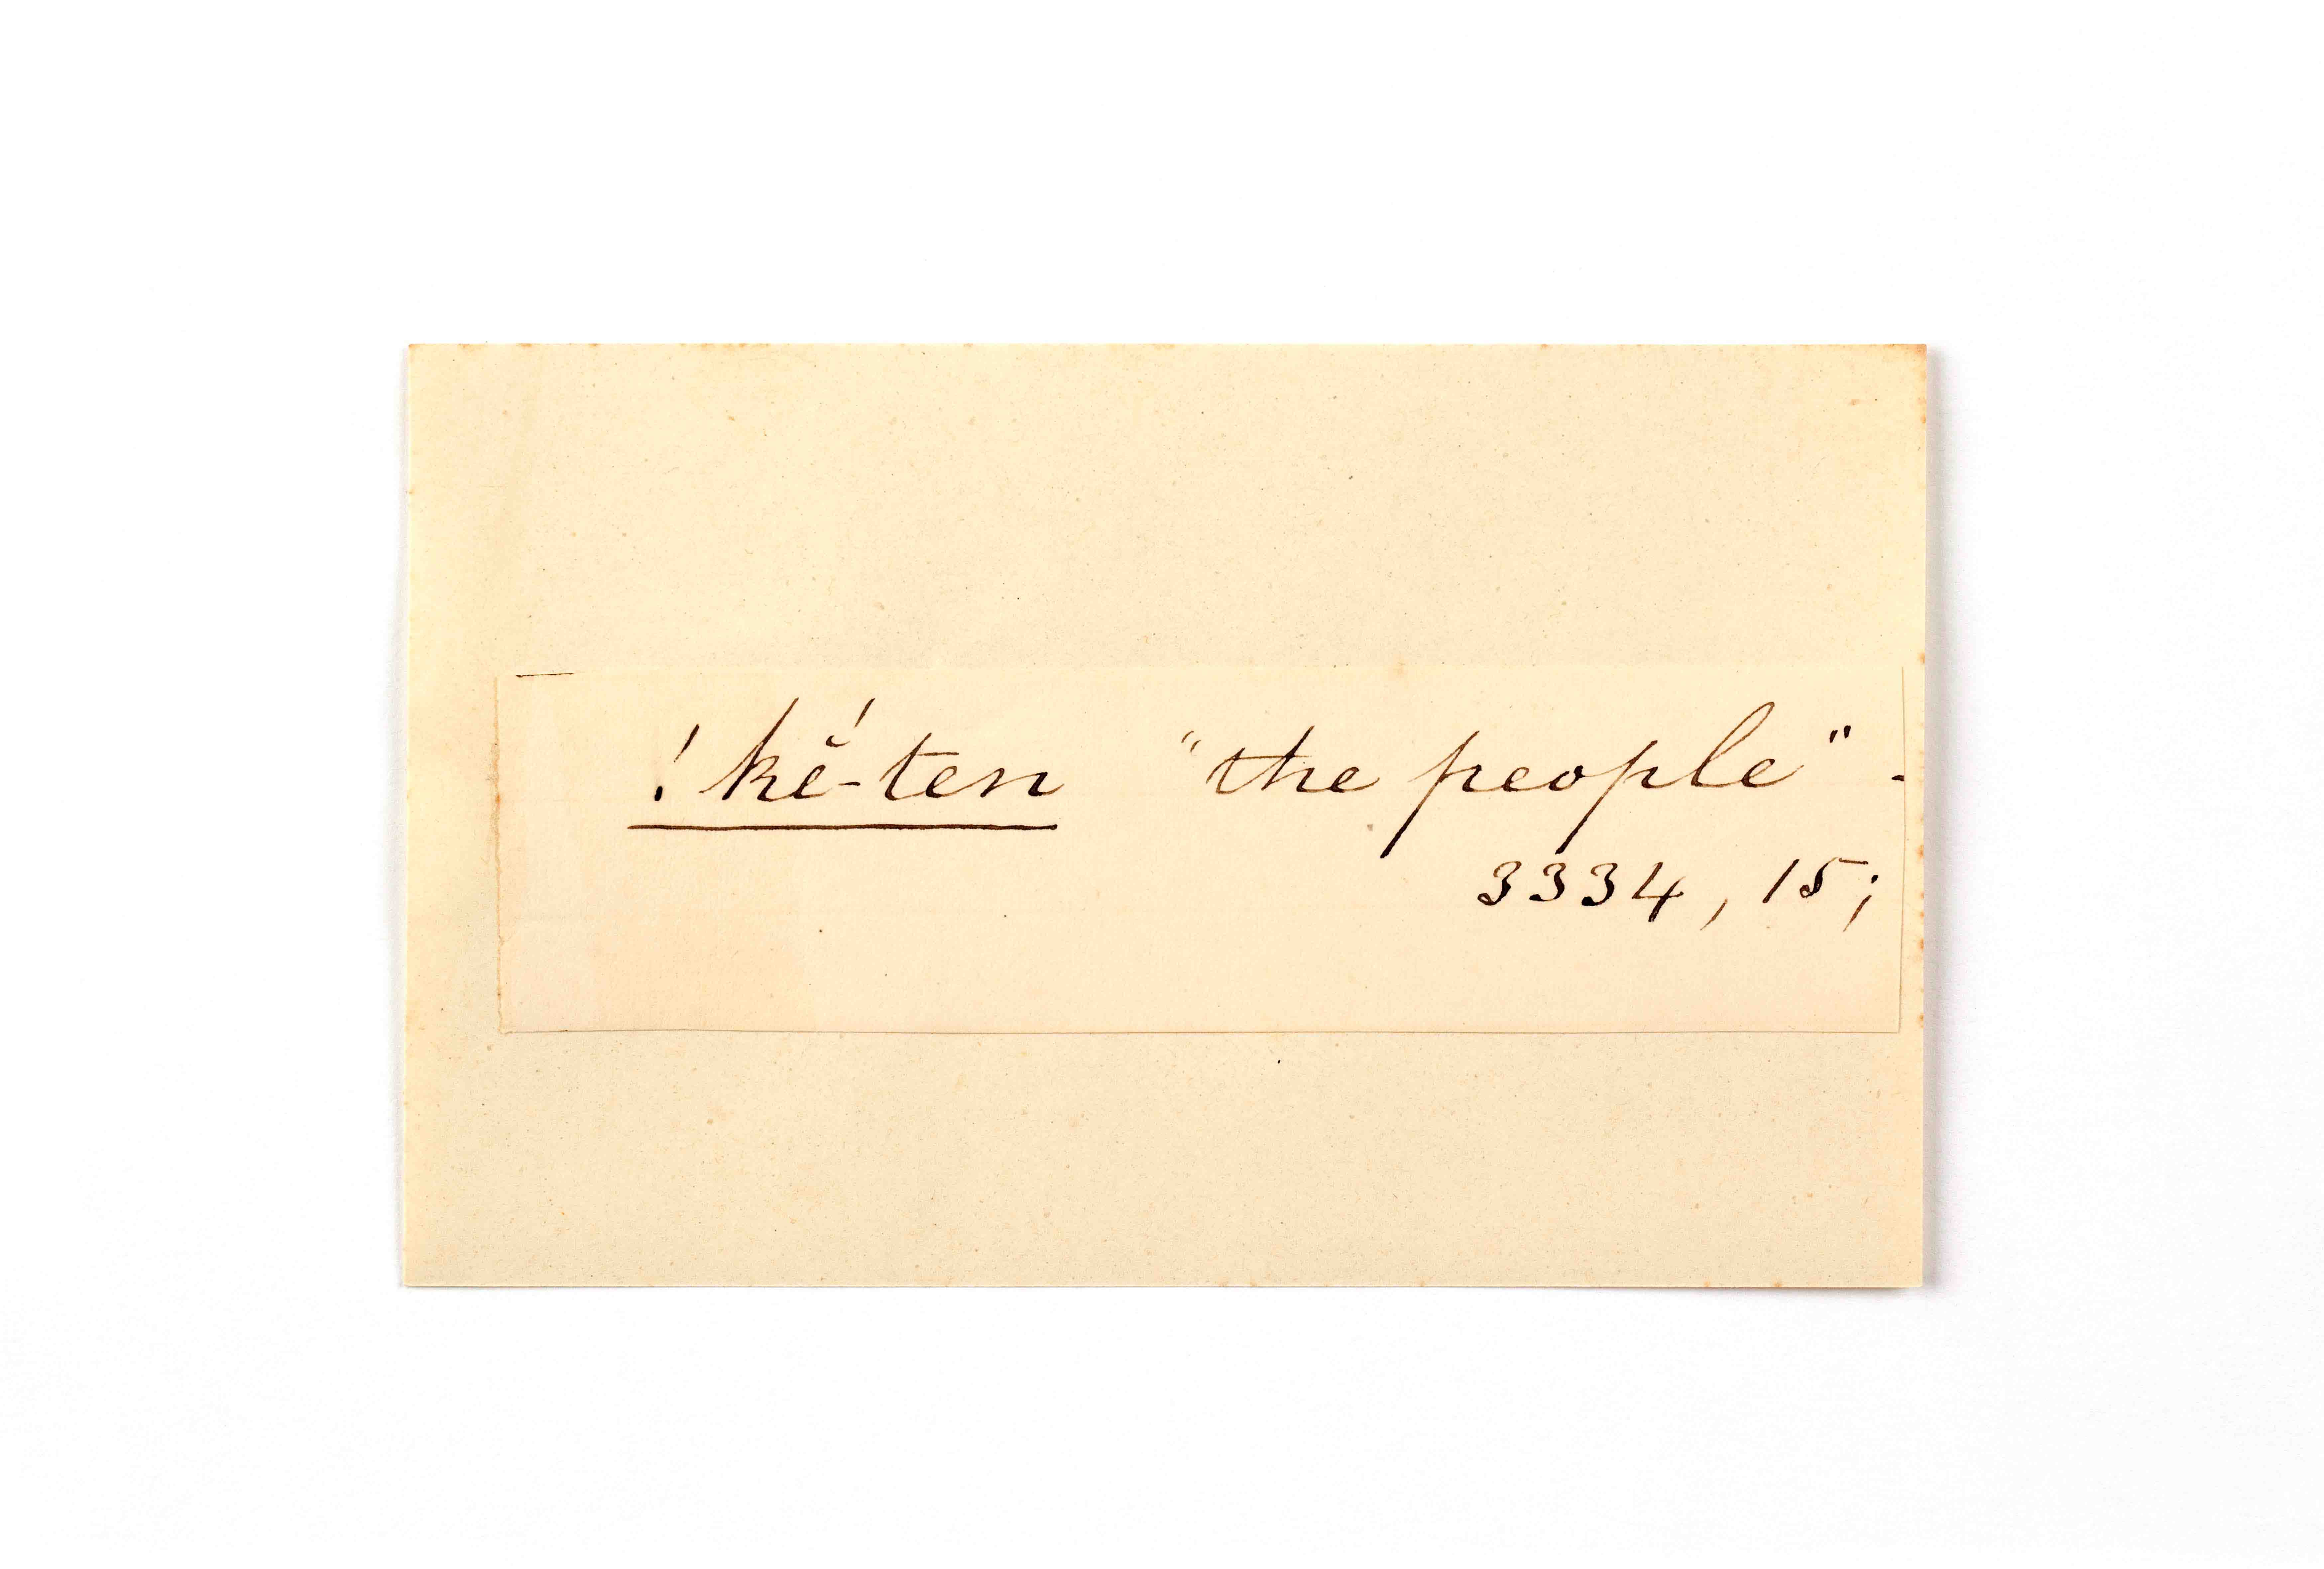 ! kĕ́-ten "the people" -
3334, 15;